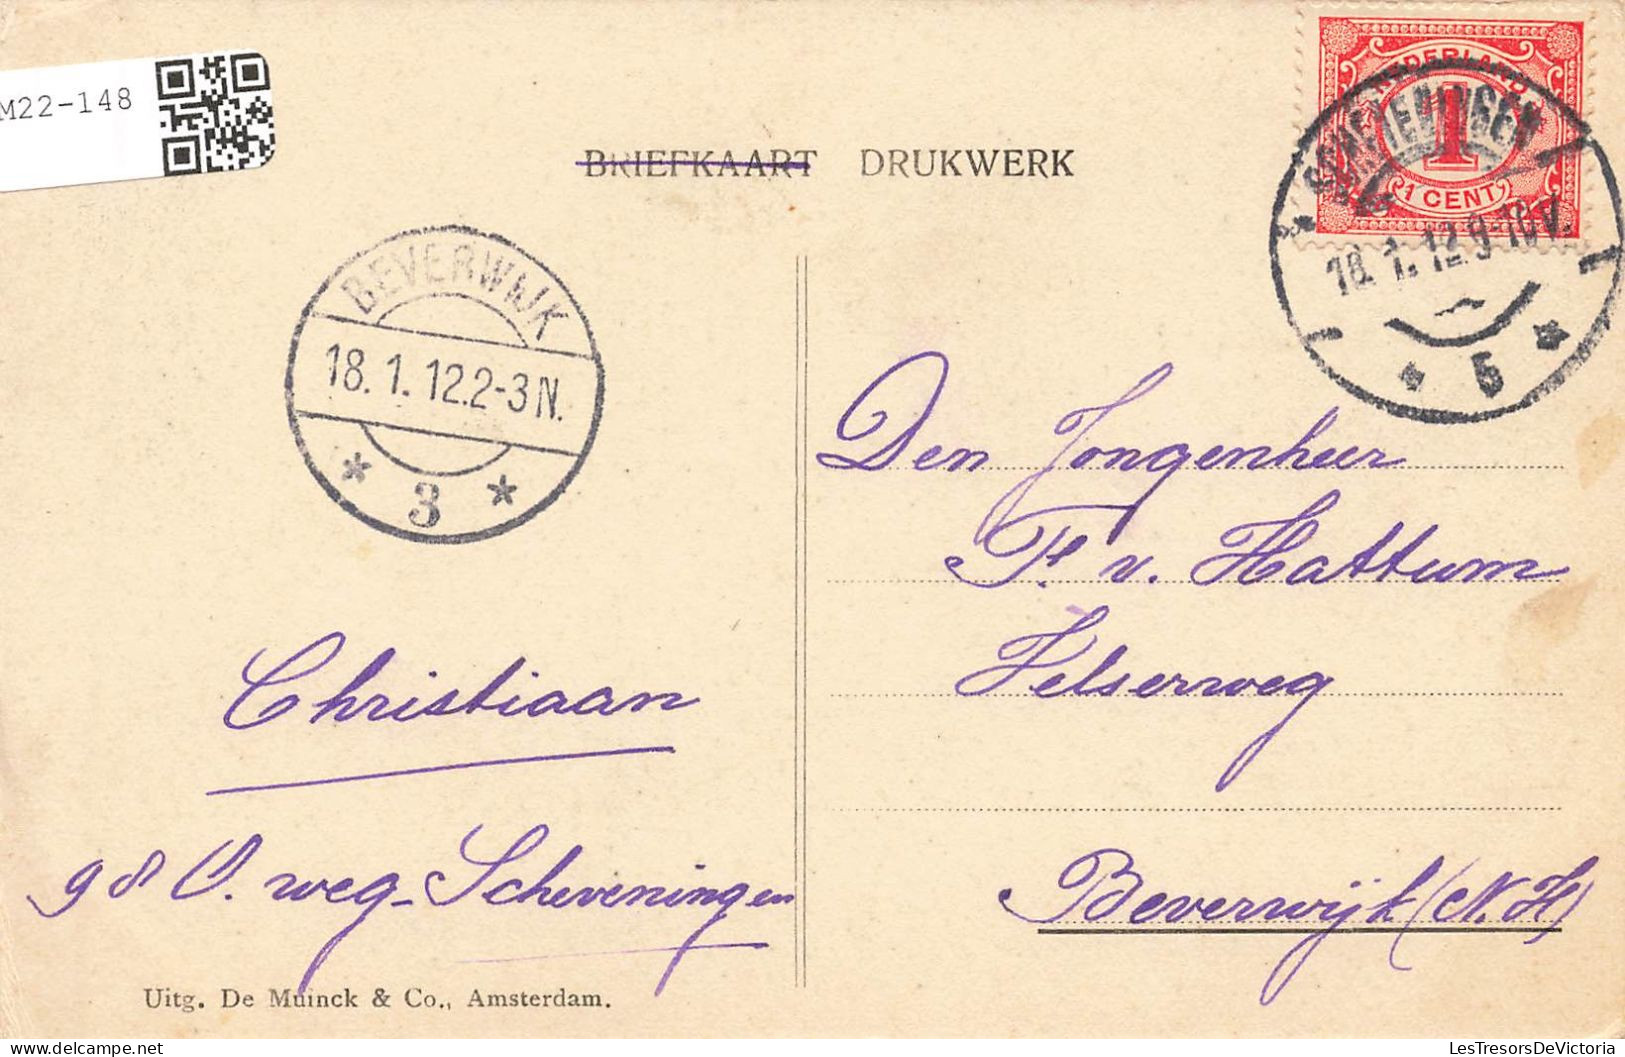 M22-148
BRIEFKAART DRUKWERK
NEDERLAND
1
1 CENT
SCHEVENINGEN
18.1.12.9-10V.
5
BEVERWIJK
18.1.12.2-3N.
3
Den Jongenheer
F. v. Hattum
Velserweg
Beverwijk (N.H)
Christiaan
98 V. weg - Scheveningen
Uitg. De Muinck & Co., Amsterdam.
LesTresorsDeVictoria